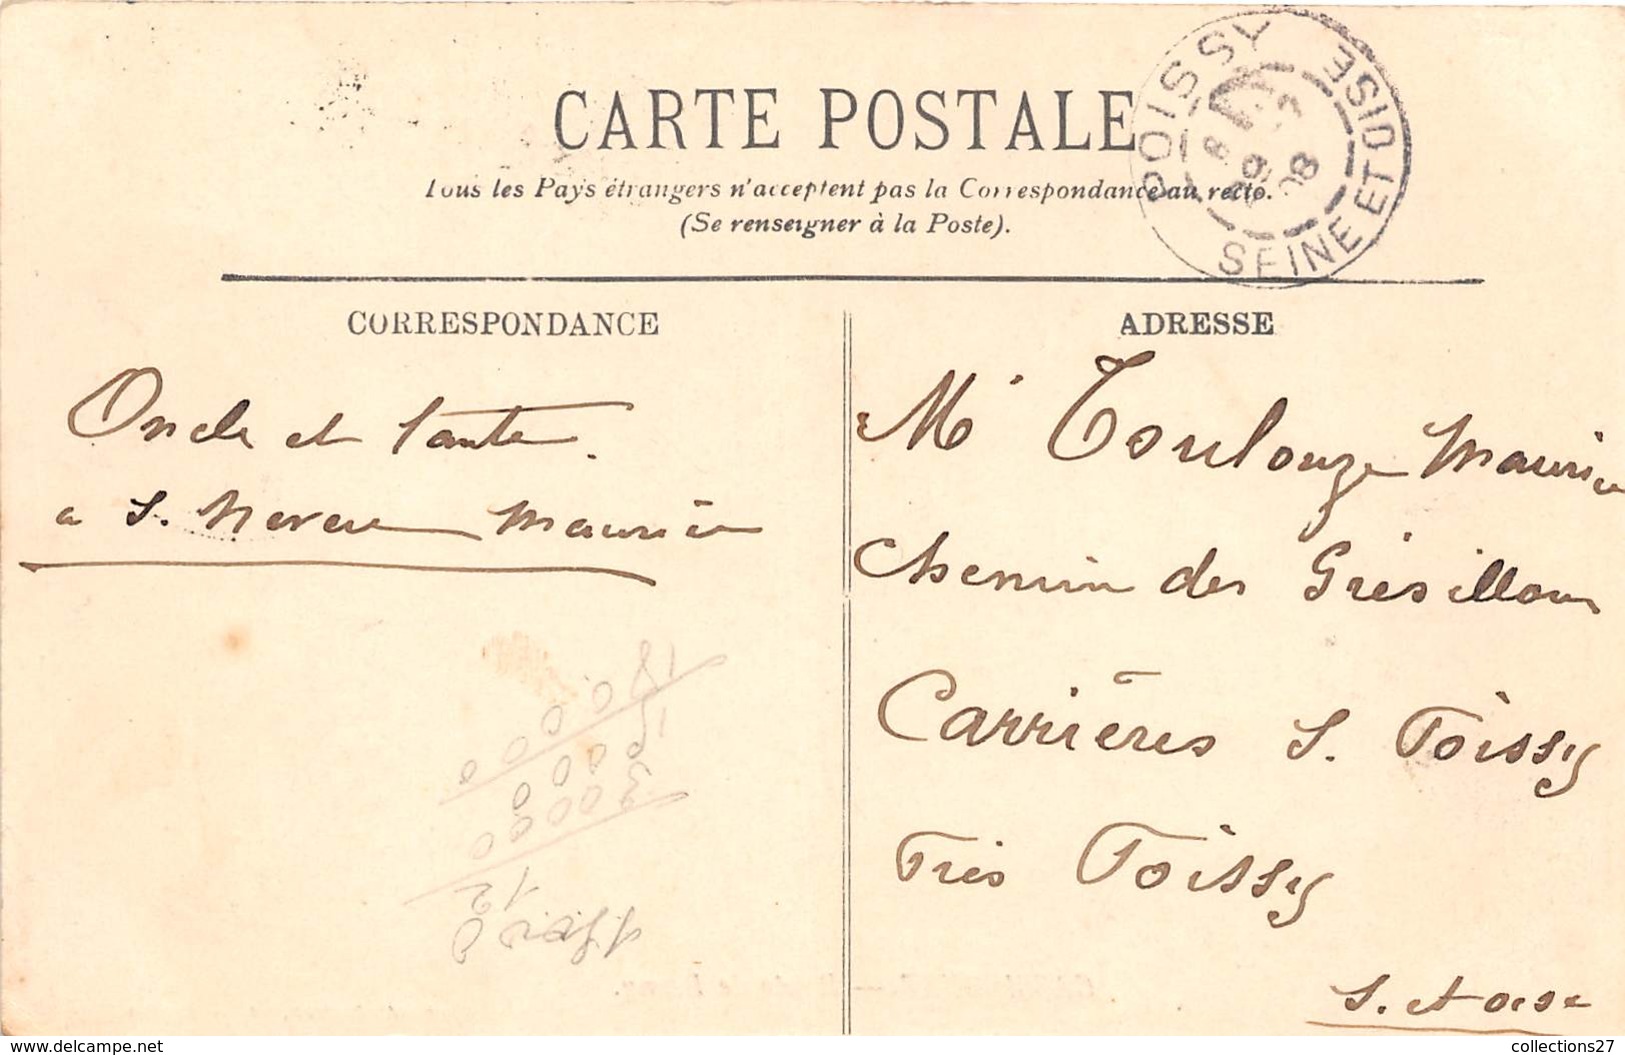 CARTE POSTALE
Tous les Pays étrangers n'acceptent pas la Correspondance au recto.
(Se renseigner à la Poste).
POISSY
SEINE ET OISE
CORRESPONDANCE
ADRESSE
Oncle et Tante.
a S. Neveu Maurice
Mr Toulouze Maurice
Chemin des Grésillons
Carrières S. Poissy
Près Poissy
S. et Oise
www.delcampe.net
collections27